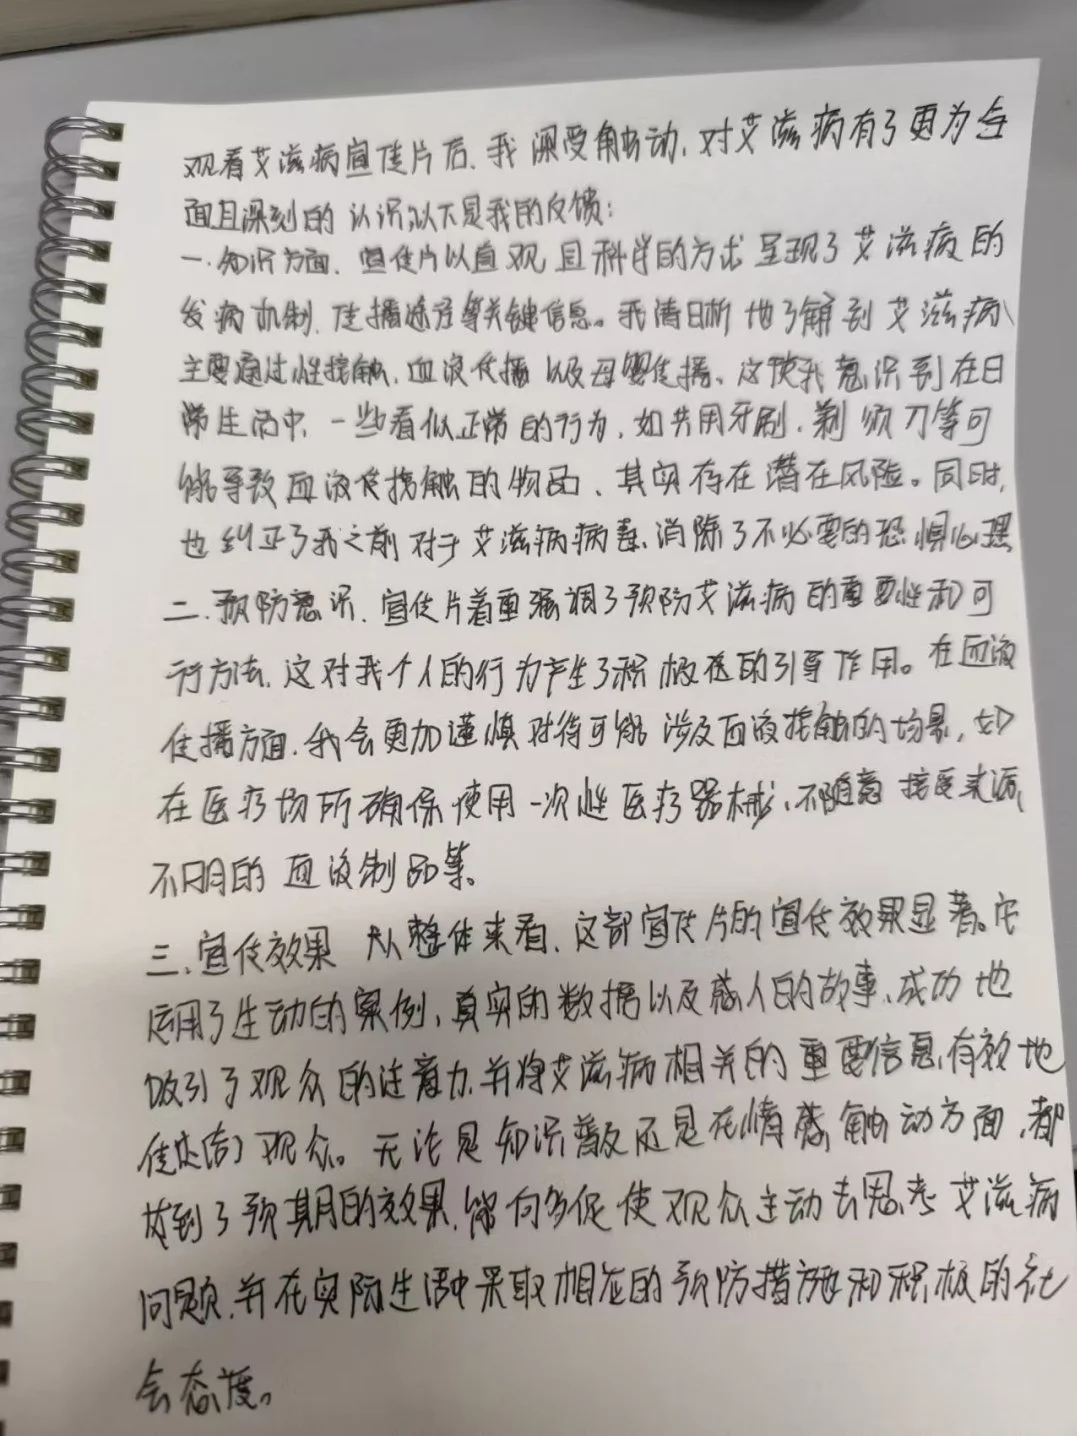 观看艾滋病宣传片后、我深受触动、对艾滋病有了更为全
面且深刻的认识,以下是我的反馈:
一.知识方面、宣传片以直观且科学的方式呈现了艾滋病的
发病机制、传播途径等关键信息。我清晰地了解到艾滋病
主要通过性接触、血液传播以及母婴传播、这使我意识到在日
常生活中、一些看似正常的行为,如共用牙刷、剃须刀等可
能导致血液传接触的物品、其实存在潜在风险。同时,
也纠正了我之前对于艾滋病病毒、消除了不必要的恐惧心理
二.预防意识、宣传片着重强调了预防艾滋病的重要性和可
行方法、这对我个人的行为产生了积极的引导作用。在血液
传播方面、我会更加谨慎对待可能涉及血液接触的场景,如
在医疗场所确保使用一次性医疗器械、不随意接受来源
不明的血液制品等。
三、宣传效果 从整体来看、这部宣传片的宣传效果显著。它
运用了生动的案例、真实的数据以及感人的故事、成功地
吸引了观众的注意力、并将艾滋病相关的重要信息有效地
传达给了观众。无论是知识普及还是在情感触动方面、都
达到了预期的效果、能够促使观众主动去思考艾滋病
问题、并在实际生活中采取相应的预防措施和积极的社
会态度。